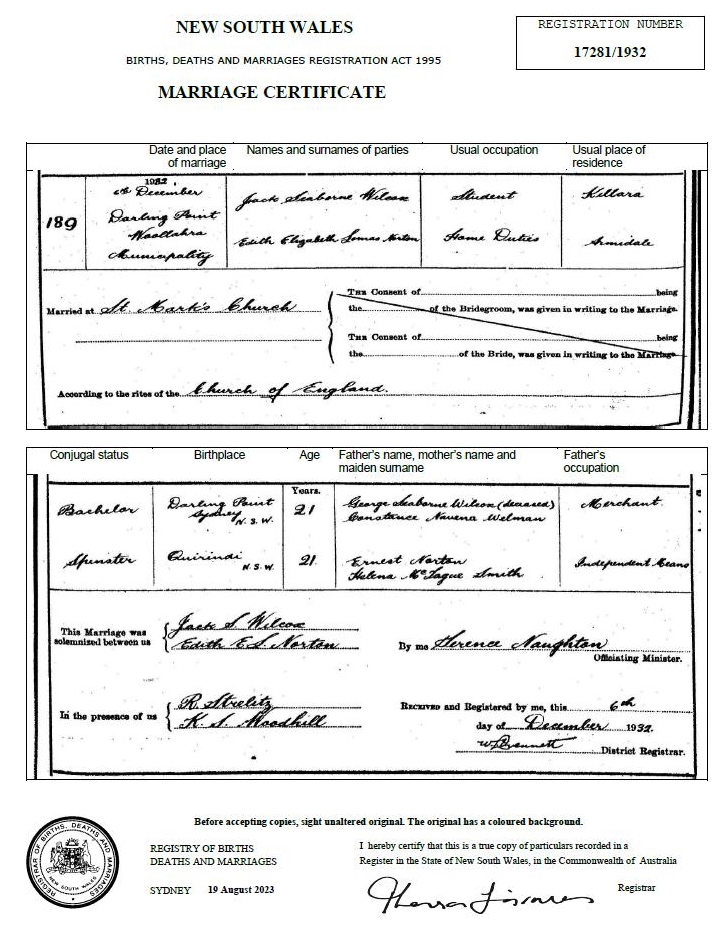 NEW SOUTH WALES
REGISTRATION NUMBER
17281/1932
BIRTHS, DEATHS AND MARRIAGES REGISTRATION ACT 1995
MARRIAGE CERTIFICATE
Date and place of marriage Names and surnames of parties Usual occupation Usual place of residence
189
1932,
6th December
Darling Point
Woollahra
Municipality
Jack Seaborne Wilcox Student Killara
Edith Elizabeth Lomas Norton Home Duties Armidale
Married at St Mark's Church
THE Consent of being
the of the Bridegroom, was given in writing to the Marriage.
THE Consent of being
the of the Bride, was given in writing to the Marriage.
According to the rites of the Church of England.
Conjugal status Birthplace Age Father's name, mother's name and maiden surname Father's occupation
Years.
Bachelor Darling Point Sydney N.S.W. 21 George Seaborne Wilcox (deceased) Merchant
Constance Navena Welman
Spinster Quirindi N.S.W. 21 Ernest Norton Independent Means
Helena McTague Smith
This Marriage was solemnized between us
Jack S. Wilcox
Edith E. L. Norton
By me Terence Naughton
Officiating Minister.
In the presence of us
R. Strelitz
K. S. Woodhill
RECEIVED and Registered by me, this 6th
day of December 1932.
District Registrar.
Before accepting copies, sight unaltered original. The original has a coloured background.
REGISTRAR OF BIRTHS, DEATHS AND MARRIAGES
NEW SOUTH WALES
REGISTRY OF BIRTHS
DEATHS AND MARRIAGES
SYDNEY 19 August 2023
I hereby certify that this is a true copy of particulars recorded in a
Register in the State of New South Wales, in the Commonwealth of Australia
Registrar